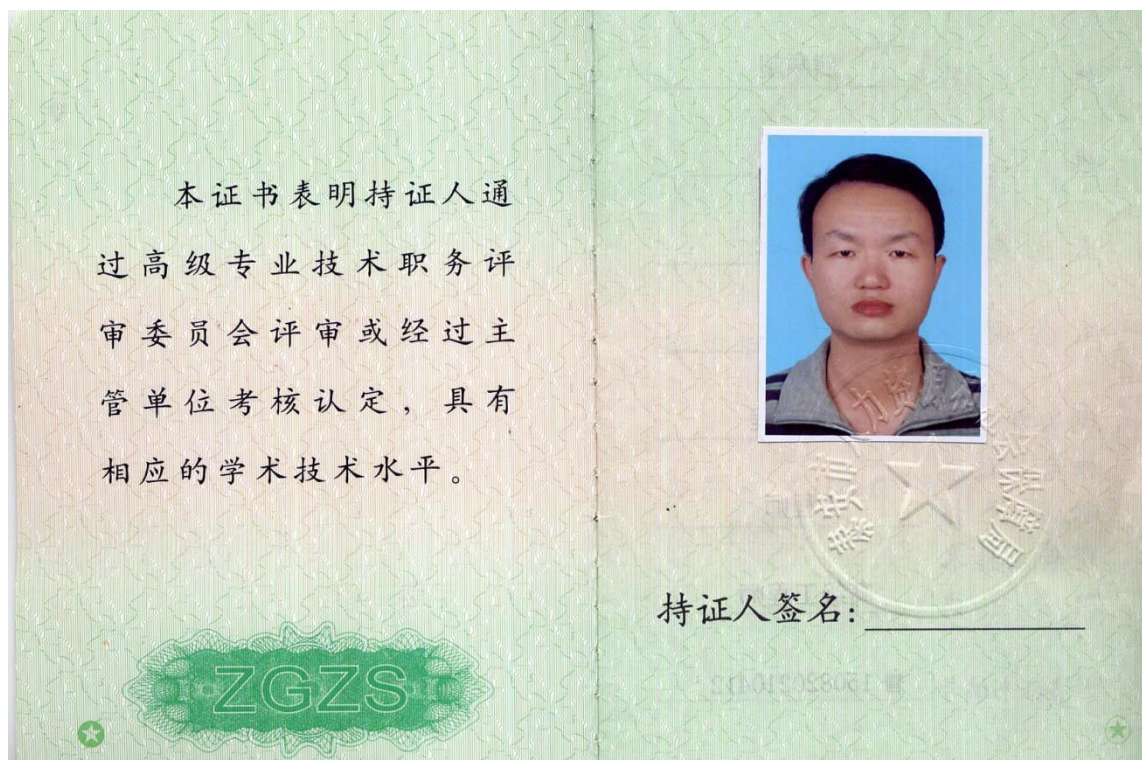 本证书表明持证人通
过高级专业技术职务评
审委员会评审或经过主
管单位考核认定，具有
相应的学术技术水平。
ZGZS
泰安市人力资源和社会保障局
持证人签名：